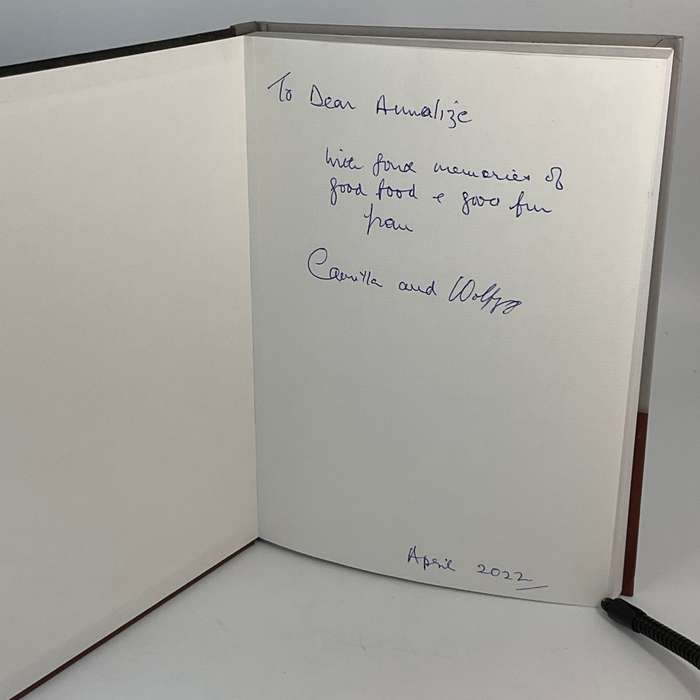 To Dear Annalize
with fond memories of
good food & good fun
from
Camilla and
April 2022